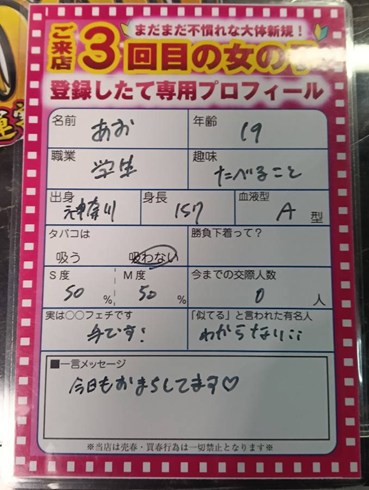 まだまだ不慣れな大体新規！
ご来店3回目の女の子
登録したて専用プロフィール
名前 あお 年齢 19
職業 学生 趣味 たべること
出身 神奈川 身長 157 血液型 A 型
タバコは 吸う 吸わない 勝負下着って？
S度 50 % M度 50 % 今までの交際人数 0 人
実は〇〇フェチです 手です！ 「似てる」と言われた有名人 わからない；；
■一言メッセージ
今日もおまちしてます♡
※当店は売春・買春行為は一切禁止となります※